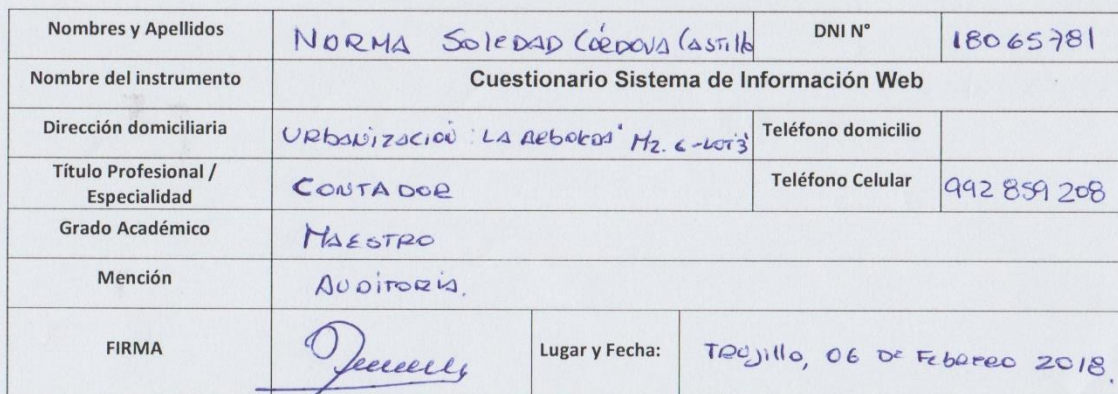 Nombres y Apellidos NORMA SOLEDAD CÓRDOVA CASTILLO DNI N° 18065781
Nombre del instrumento Cuestionario Sistema de Información Web
Dirección domiciliaria URBANIZACIÓN LA Mz. LOT 3 Teléfono domicilio
Título Profesional /
Especialidad CONTADOR Teléfono Celular 992 859 208
Grado Académico MAESTRO
Mención AUDITORIA.
FIRMA Lugar y Fecha: TRUJILLO, 06 DE FEBRERO 2018.